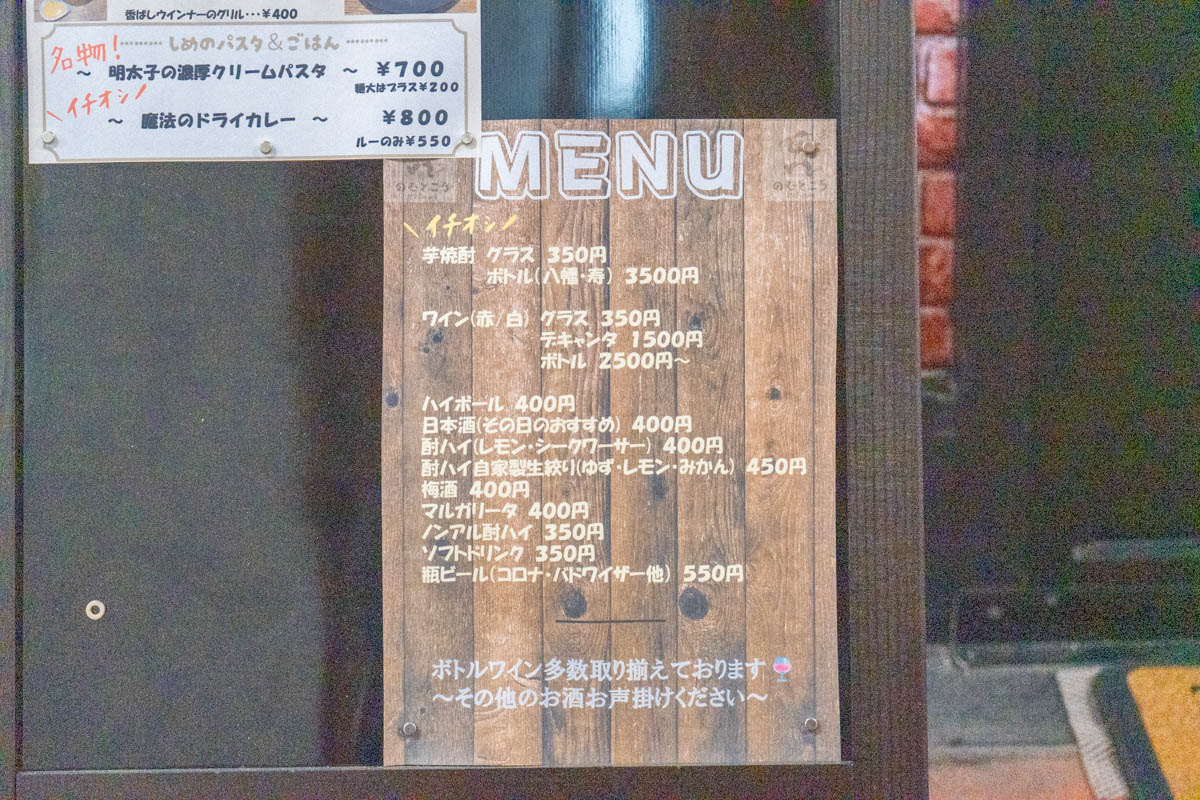 香ばしウインナーのグリル･･･¥400
名物!
しめのパスタ&ごはん
～ 明太子の濃厚クリームパスタ ～ ¥700
麺大はプラス¥200
＼イチオシ／
～ 魔法のドライカレー ～ ¥800
ルーのみ¥550
MENU
のむところ
のむところ
＼イチオシ／
芋焼酎 グラス 350円
ボトル(八幡・寿) 3500円
ワイン(赤/白) グラス 350円
デキャンタ 1500円
ボトル 2500円～
ハイボール 400円
日本酒(その日のおすすめ) 400円
酎ハイ(レモン・シークワーサー) 400円
酎ハイ自家製生絞り(ゆず・レモン・みかん) 450円
梅酒 400円
マルガリータ 400円
ノンアル酎ハイ 350円
ソフトドリンク 350円
瓶ビール(コロナ・バドワイザー他) 550円
ボトルワイン多数取り揃えております
～その他のお酒お声掛けください～